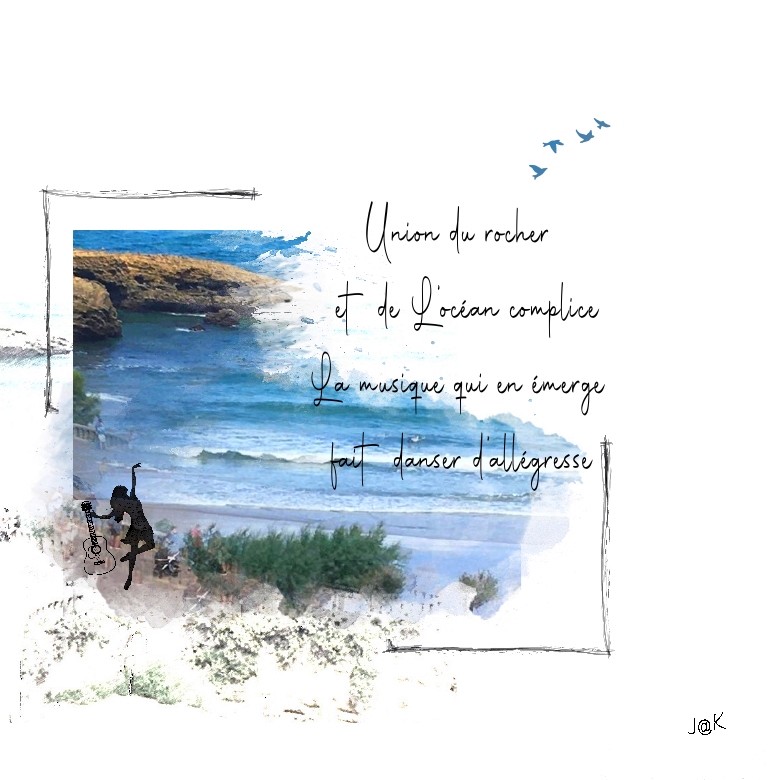 Union du rocher
et de L'océan complice
La musique qui en émerge
fait danser d'allégresse
J@K